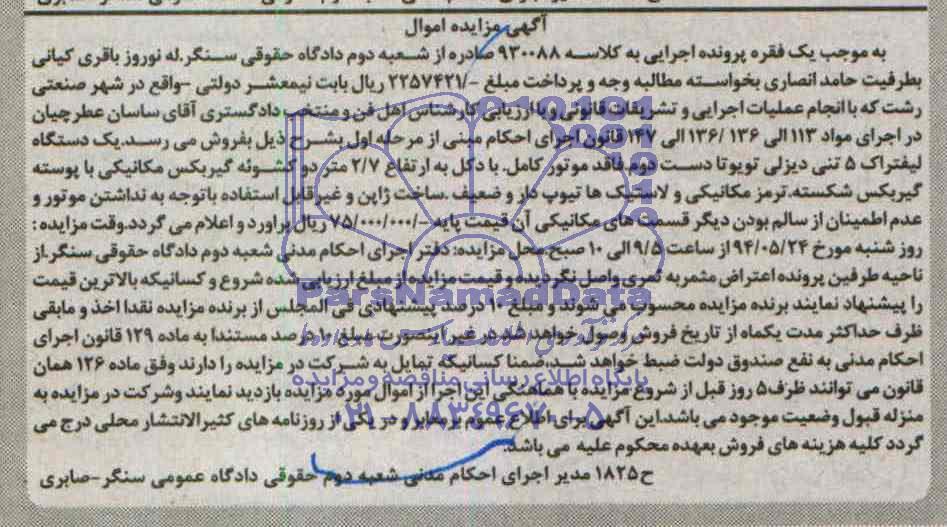 آگهی مزایده اموال
به موجب یک فقره پرونده اجرایی به کلاسه ۹۳۰۰۸۸ صادره از شعبه دوم دادگاه حقوقی سنگر.له نوروز باقری کیانی
بطرفیت حامد انصاری بخواسته مطالبه وجه و پرداخت مبلغ -/۲۲۵۷۴۲۱ ریال بابت نیمعشر دولتی -واقع در شهر صنعتی
رشت که با انجام عملیات اجرایی و تشریفات قانونی و با ارزیابی کارشناس اهل فن و منتخب دادگستری آقای ساسان عطرچیان
در اجرای مواد ۱۱۳ الی ۱۳۶ /۱۳۶ الی ۱۴۷ قانون اجرای احکام مبنی از مرحله اول بشرح ذیل بفروش می رسد.یک دستگاه
لیفتراک ۵ تنی دیزلی تویوتا دست دوم فاقد موتور کامل. با دکل به ارتفاع ۲/۷ متر دو کشوئه گیربکس مکانیکی با پوسته
گیربکس شکسته.ترمز مکانیکی و لاستیک ها تیوپ دار و ضعیف .ساخت ژاپن و غیرقابل استفاده باتوجه به نداشتن موتور و
عدم اطمینان از سالم بودن دیگر قسمت های مکانیکی آن قیمت پایه -/۷۵/۰۰۰/۰۰۰ ریال براورد و اعلام می گردد.وقت مزایده :
روز شنبه مورخ ۹۴/۰۵/۲۴ از ساعت ۹/۵ الی ۱۰ صبح.محل مزایده: دفتر اجرای احکام مدنی شعبه دوم دادگاه حقوقی سنگر.از
ناحیه طرفین پرونده اعتراض مثمربه ثمری واصل نگردیده و قیمت مزایده از مبلغ ارزیابی شده شروع و کسانیکه بالاترین قیمت
را پیشنهاد نمایند برنده مزایده محسوب می شوند و مبلغ ۱۰ درصد پیشنهادی فی المجلس از برنده مزایده نقدا اخذ و مابقی
ظرف حداکثر مدت یکماه از تاریخ فروش وصول خواهد شد در غیر اینصورت مبلغ ۱۰ درصد مستندا به ماده ۱۲۹ قانون اجرای
احکام مدنی به نفع صندوق دولت ضبط خواهد شد.ضمنا کسانیکه تمایل به شرکت در مزایده را دارند وفق ماده ۱۲۶ همان
قانون می توانند ظرف۵ روز قبل از شروع مزایده با هماهنگی این اجرا از اموال مورد مزایده بازدید نمایند وشرکت در مزایده به
منزله قبول وضعیت موجود می باشد.این آگهی برای اطلاع عموم برابر و در یکی از روزنامه های کثیرالانتشار محلی درج می
گردد کلیه هزینه های فروش بعهده محکوم علیه می باشد.
ح۱۸۲۵ مدیر اجرای احکام مدنی شعبه دوم حقوقی دادگاه عمومی سنگر-صابری
ParsNamadData
پایگاه اطلاع رسانی مناقصه و مزایده
۰۲۱-۸۸۳۴۹۶۷۰-۵